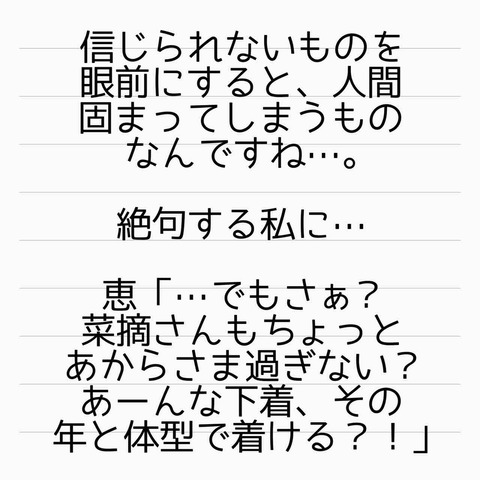 信じられないものを
眼前にすると、人間
固まってしまうもの
なんですね…。
絶句する私に…
恵「…でもさぁ？
菜摘さんもちょっと
あからさま過ぎない？
あーんな下着、その
年と体型で着ける？！」